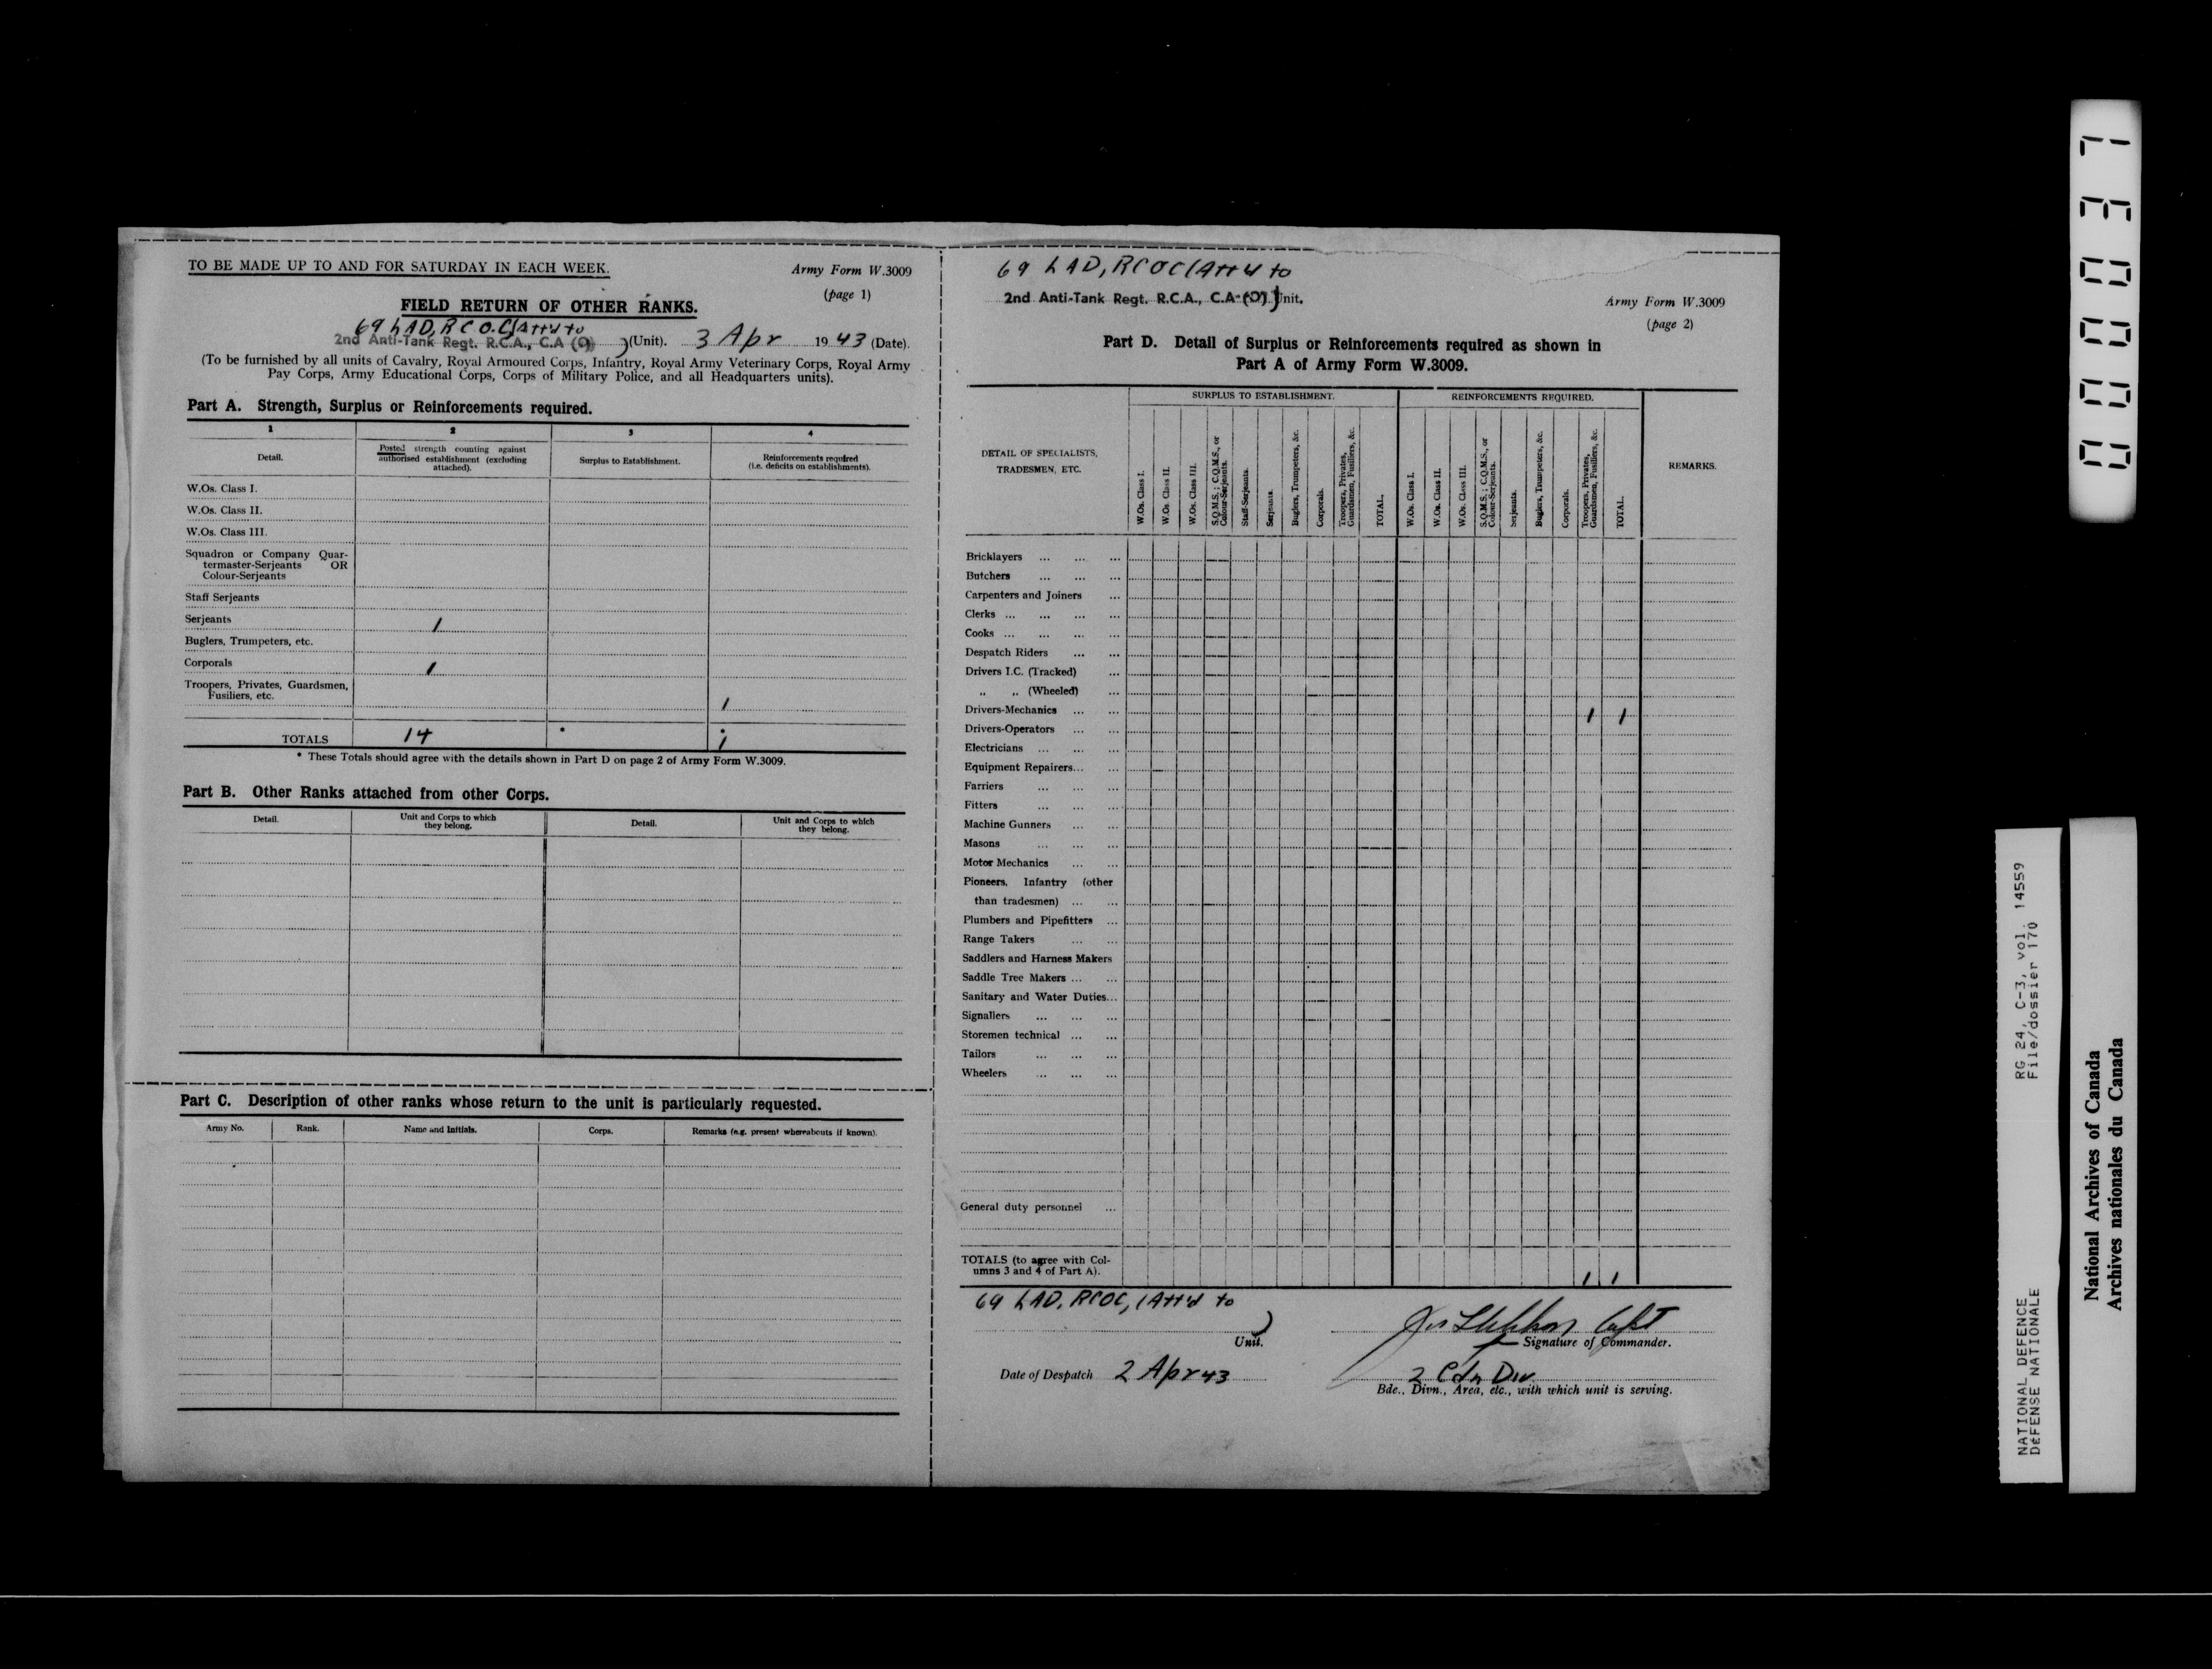 TO BE MADE UP TO AND FOR SATURDAY IN EACH WEEK.
Army Form W.3009
(page 1)
FIELD RETURN OF OTHER RANKS.
69 LAD, RCOC (Att'd to
2nd Anti-Tank Regt. R.C.A., C.A (O) ) (Unit). 3 Apr 1943 (Date).
(To be furnished by all units of Cavalry, Royal Armoured Corps, Infantry, Royal Army Veterinary Corps, Royal Army
Pay Corps, Army Educational Corps, Corps of Military Police, and all Headquarters units).
Part A. Strength, Surplus or Reinforcements required.
1 2 3 4
Detail.
Posted strength counting against
authorised establishment (excluding
attached).
Surplus to Establishment.
Reinforcements required
(i.e. deficits on establishments).
W.Os. Class I.
W.Os. Class II.
W.Os. Class III.
Squadron or Company Quar-
termaster-Serjeants OR
Colour-Serjeants
Staff Serjeants
Serjeants 1
Buglers, Trumpeters, etc.
Corporals 1
Troopers, Privates, Guardsmen,
Fusiliers, etc. 1
TOTALS 14 * * 1
* These Totals should agree with the details shown in Part D on page 2 of Army Form W.3009.
Part B. Other Ranks attached from other Corps.
Detail.
Unit and Corps to which
they belong.
Detail.
Unit and Corps to which
they belong.
Part C. Description of other ranks whose return to the unit is particularly requested.
Army No. Rank. Name and Initials. Corps. Remarks (e.g. present whereabouts if known).
69 LAD, RCOC (Att'd to
2nd Anti-Tank Regt. R.C.A., C.A. (O) ) Unit.
Army Form W.3009
(page 2)
Part D. Detail of Surplus or Reinforcements required as shown in
Part A of Army Form W.3009.
DETAIL OF SPECIALISTS,
TRADESMEN, ETC.
SURPLUS TO ESTABLISHMENT.
W.Os. Class I.
W.Os. Class II.
W.Os. Class III.
S.Q.M.S.; C.Q.M.S., or
Colour-Serjeants.
Staff-Serjeants.
Serjeants.
Buglers, Trumpeters, &c.
Corporals.
Troopers, Privates,
Guardsmen, Fusiliers, &c.
TOTAL.
REINFORCEMENTS REQUIRED.
W.Os. Class I.
W.Os. Class II.
W.Os. Class III.
S.Q.M.S.; C.Q.M.S., or
Colour-Serjeants.
Serjeants.
Buglers, Trumpeters, &c.
Corporals.
Troopers, Privates,
Guardsmen, Fusiliers, &c.
TOTAL.
REMARKS.
Bricklayers ... ... ...
Butchers ... ... ...
Carpenters and Joiners ...
Clerks ... ... ... ...
Cooks ... ... ... ...
Despatch Riders ... ...
Drivers I.C. (Tracked) ...
„ „ (Wheeled) ...
Drivers-Mechanics ... ... 1 1
Drivers-Operators ... ...
Electricians ... ... ...
Equipment Repairers... ...
Farriers ... ... ...
Fitters ... ... ...
Machine Gunners ... ...
Masons ... ... ...
Motor Mechanics ... ...
Pioneers, Infantry (other
than tradesmen) ... ...
Plumbers and Pipefitters ...
Range Takers ... ...
Saddlers and Harness Makers
Saddle Tree Makers ... ...
Sanitary and Water Duties...
Signallers ... ... ...
Storemen technical ... ...
Tailors ... ... ...
Wheelers ... ... ...
General duty personnel ...
TOTALS (to agree with Col-
umns 3 and 4 of Part A). 1 1
69 LAD, RCOC, (Att'd to
) Unit.
Capt
Signature of Commander.
Date of Despatch 2 Apr 43
2 Cdn Div
Bde., Divn., Area, etc., with which unit is serving.
000037
RG 24, C-3, vol. 14559
File/dossier 170
NATIONAL DEFENCE
DÉFENSE NATIONALE
National Archives of Canada
Archives nationales du Canada